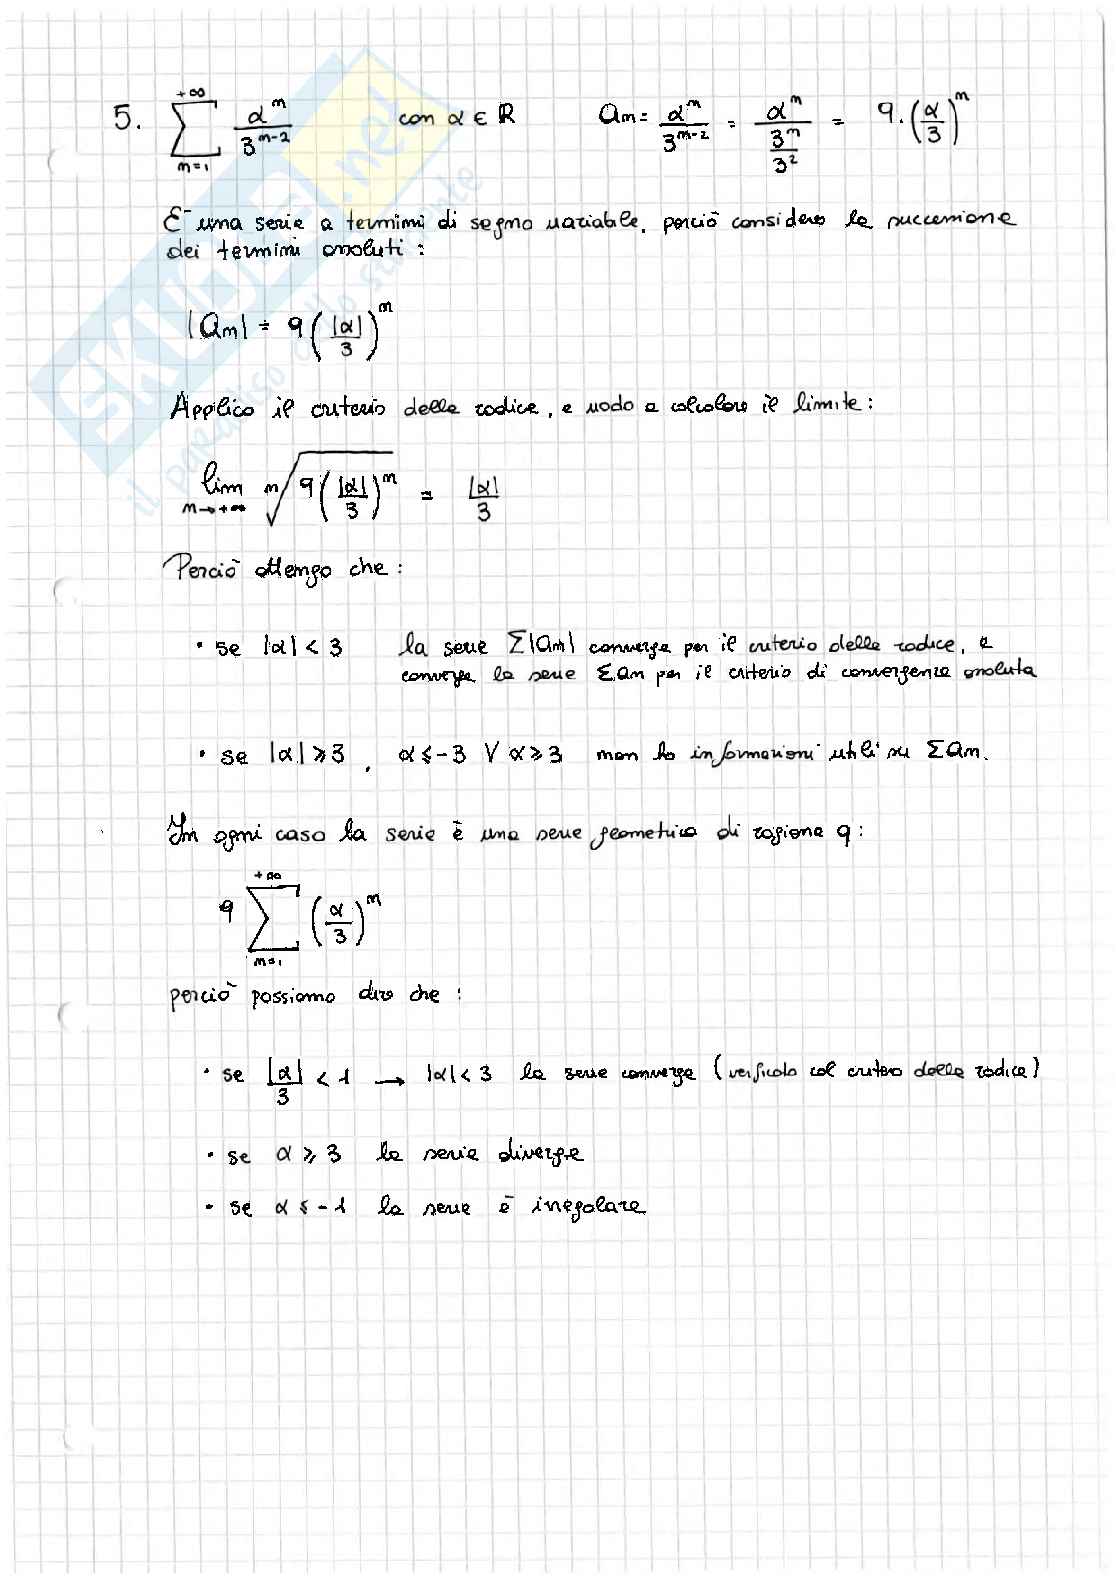 5. $\sum_{n=1}^{+\infty} \frac{\alpha^n}{3^{n-2}}$ con $\alpha \in \mathbb{R}$ $a_n = \frac{\alpha^n}{3^{n-2}} = \frac{\alpha^n}{\frac{3^n}{3^2}} = 9 \cdot \left(\frac{\alpha}{3}\right)^n$
È una serie a termini di segno variabile, perciò considero la successione
dei termini assoluti :
$|a_n| = 9 \left(\frac{|\alpha|}{3}\right)^n$
Applico il criterio della radice, e vado a calcolare il limite :
$\lim_{n \to +\infty} \sqrt[n]{9 \left(\frac{|\alpha|}{3}\right)^n} = \frac{|\alpha|}{3}$
Perciò ottengo che :
• se $|\alpha| < 3$ la serie $\Sigma |a_n|$ converge per il criterio della radice, e
converge la serie $\Sigma a_n$ per il criterio di convergenza assoluta
• se $|\alpha| \geqslant 3$, $\alpha \leqslant -3 \lor \alpha \geqslant 3$ non ho informazioni utili su $\Sigma a_n$.
In ogni caso la serie è una serie geometrica di ragione q :
$9 \sum_{n=1}^{+\infty} \left(\frac{\alpha}{3}\right)^n$
perciò possiamo dire che :
• se $\frac{|\alpha|}{3} < 1 \to |\alpha| < 3$ la serie converge (verificato col criterio della radice)
• se $\alpha \geqslant 3$ la serie diverge
• se $\alpha \leqslant -1$ la serie è irregolare
SKUOLA.net
il paradiso dello studente